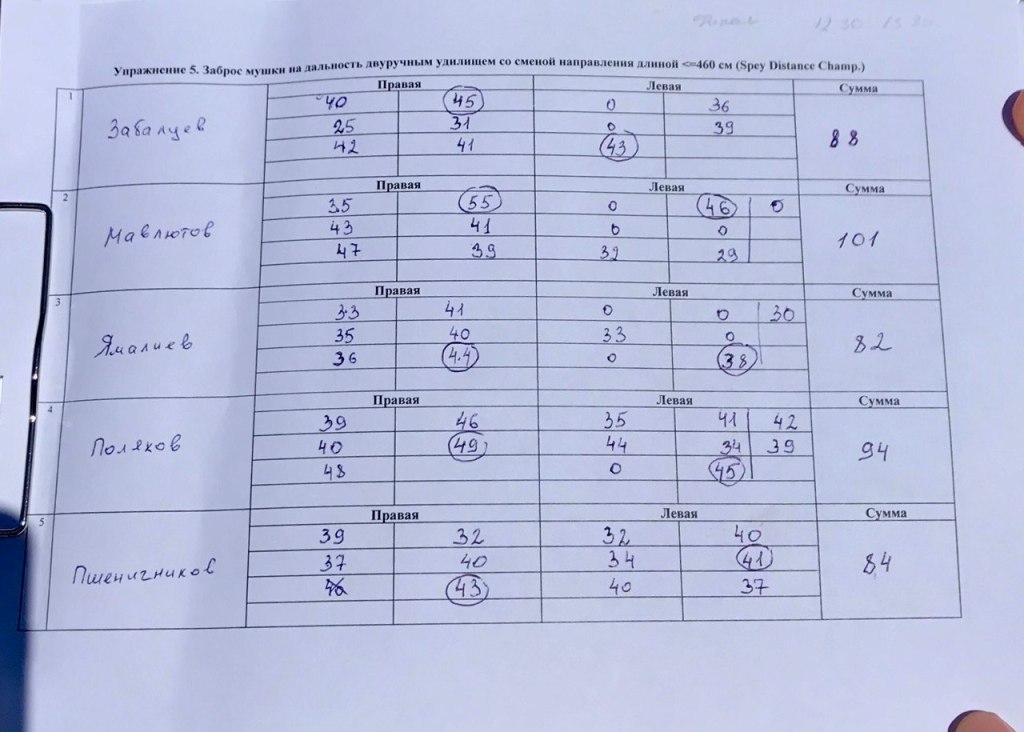 12 30 13 30
Упражнение 5. Заброс мушки на дальность двуручным удилищем со сменой направления длиной <=460 см (Spey Distance Champ.)
1 Правая Левая Сумма
Забалуев 40 45 0 36 88
25 31 0 39
42 41 43
2 Правая Левая Сумма
Мавлютов 35 55 0 46 0 101
43 41 0 0
47 39 32 29
3 Правая Левая Сумма
Ямалиев 33 41 0 0 30 82
35 40 33 0
36 44 0 38
4 Правая Левая Сумма
Поляков 39 46 35 41 42 94
40 49 44 34 39
48 0 45
5 Правая Левая Сумма
Пшеничников 39 32 32 40 84
37 40 34 41
43 40 37